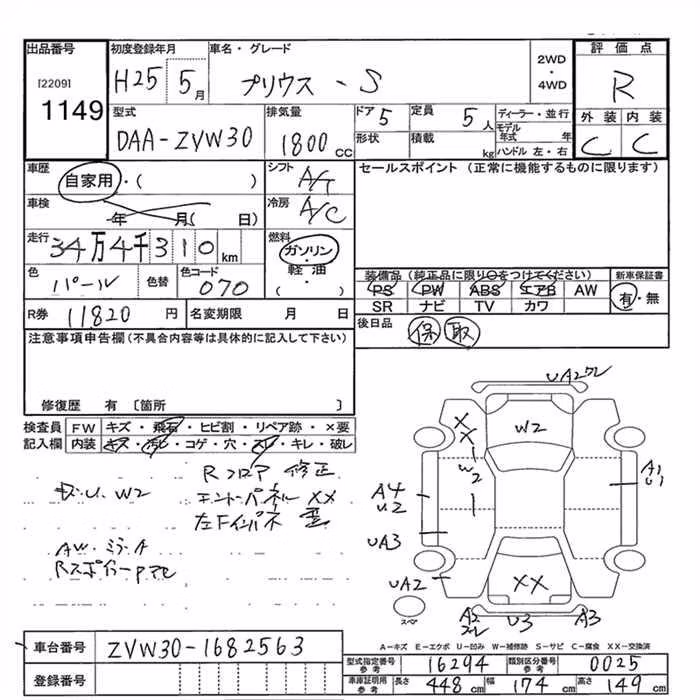 出品番号 初度登録年月 車名・グレード 2WD ・ 4WD 評価点
[2209]
1149
H25 5月 プリウス-S R
型式 排気量 ドア 定員 ディーラー・並行 外装 内装
DAA-ZVW30 1800cc 5 5人 モデル年式 年 C C
形状 積載 kg ハンドル 左・右
車歴 シフト セールスポイント (正常に機能するものに限ります)
自家用・( ) A/T
車検 冷房
年 月( 日) A/C
走行 燃料
34万4千310km ガソリン・軽油・( )
装備品 (純正品に限り○をつけてください) 新車保証書
色 色替 色コード PS PW ABS エアB AW 有・無
パール 070 SR ナビ TV カワ
R券 11820円 名変期限 月 日 後日品 保 取
注意事項申告欄(不具合内容等は具体的に記入して下さい)
修復歴 有〔箇所 〕
検査員 FW キズ・飛石・ヒビ割・リペア跡・×要
記入欄 内装 キズ・汚レ・コゲ・穴・スレ・キレ・破レ
Rフロア 修正
U. W2
XX
AW・ミラーA
UA2
W2
XX
W2
A4
U2
A1
U1
UA3
UA2
XX
スペア
A2 U3 A3
A-キズ E-エクボ U-凹み W-補修跡 S-サビ C-腐食 XX-交換済
車台番号 ZVW30-1682563
型式指定番号 参考 16294 類別区分番号 参考 0025
登録番号 車庫証明用 参考 長さ 448cm 幅 174cm 高さ 149cm